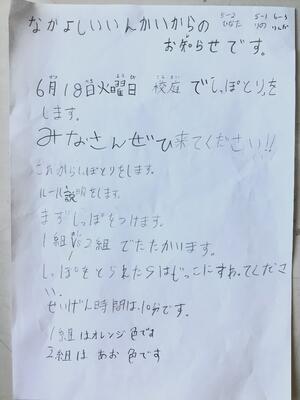 なかよしいいんかいからの
お知らせです。
5-2 ひなた
5-1 りの
6-3
6月18日火曜日 校庭で「しっぽとり」を
します。
みなさんぜひ来てください!!
これからしっぽとりをします。
ルール説明をします。
まずしっぽをつけます。
1組vs2組でたたかいます。
しっぽをとられたらはじっこにすわってくださ
い。
せいげん時間は、10分です。
1組はオレンジ色です
2組はあお色です